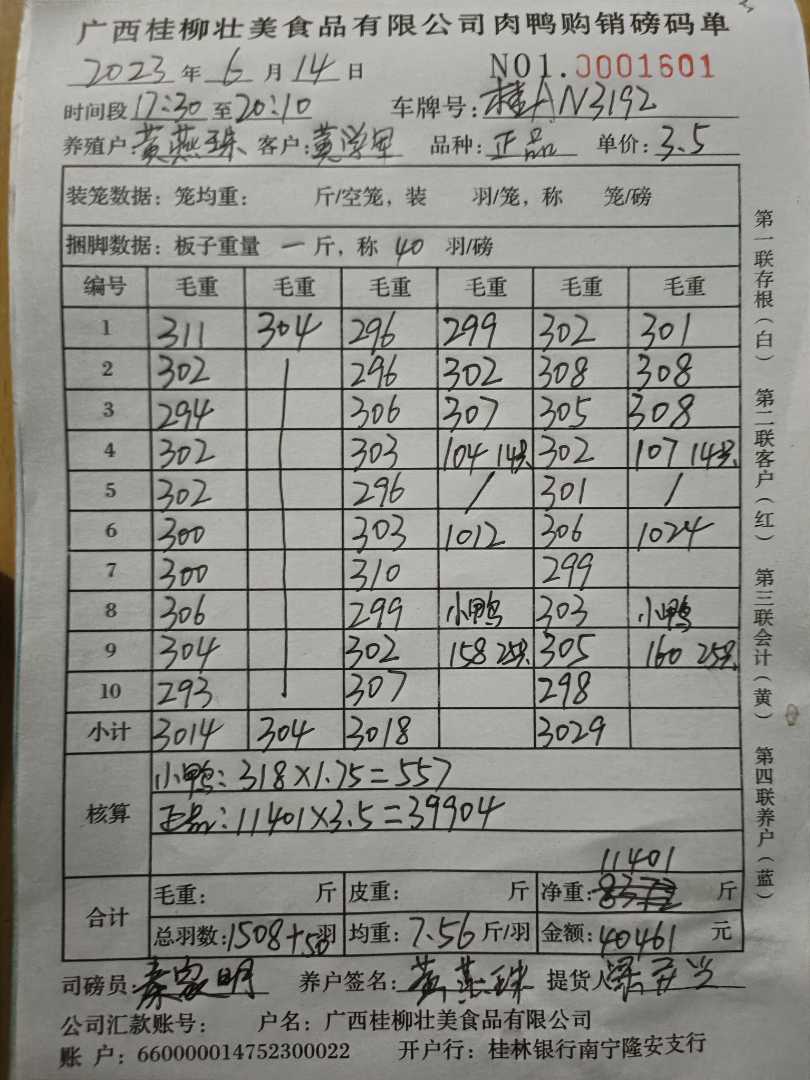 广西桂柳壮美食品有限公司肉鸭购销磅码单
2023年6月14日 NO1.0001601
时间段17:30至20:10 车牌号:桂AN3192
养殖户:黄燕珠 客户:黄学 品种:正品 单价:3.5
装笼数据:笼均重: 斤/空笼,装 羽/笼,称 笼/磅
捆脚数据:板子重量 一 斤,称 40 羽/磅
编号 毛重 毛重 毛重 毛重 毛重 毛重
1 311 304 296 299 302 301
2 302 296 302 308 308
3 294 306 307 305 308
4 302 303 104 14只 302 107 14只
5 302 296 / 301 /
6 300 303 1012 306 1024
7 300 310 299
8 306 299 小鸭 303 小鸭
9 304 302 158 25只 305 160 25只
10 293 307 298
小计 3014 304 3018 3029
核算 小鸭:318×1.75=557
正品:11401×3.5=39904
11401
合计 毛重: 斤 皮重: 斤 净重: 斤
总羽数:1508+50羽 均重:7.56斤/羽 金额:40461元
司磅员:秦家明 养户签名:黄燕珠 提货人
公司汇款账号: 户名:广西桂柳壮美食品有限公司
账 户:660000014752300022 开户行:桂林银行南宁隆安支行
第一联存根(白) 第二联客户(红) 第三联会计(黄) 第四联养户(蓝)